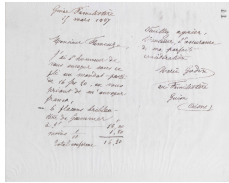 Guise Familistère
15 mars 1887
Monsieur
J'ai l'honneur de
vous envoyer sous ce
pli un mandat-poste
de 16 fr. 20, en vous
priant de m'envoyer
franco,
6 flacons
de
à 3f 18,00
moins 1,80
Total 16,20
Veuillez agréer,
Monsieur, l'assurance
de ma parfaite
considération
Marie Godin
au Familistère
Guise
(Aisne)